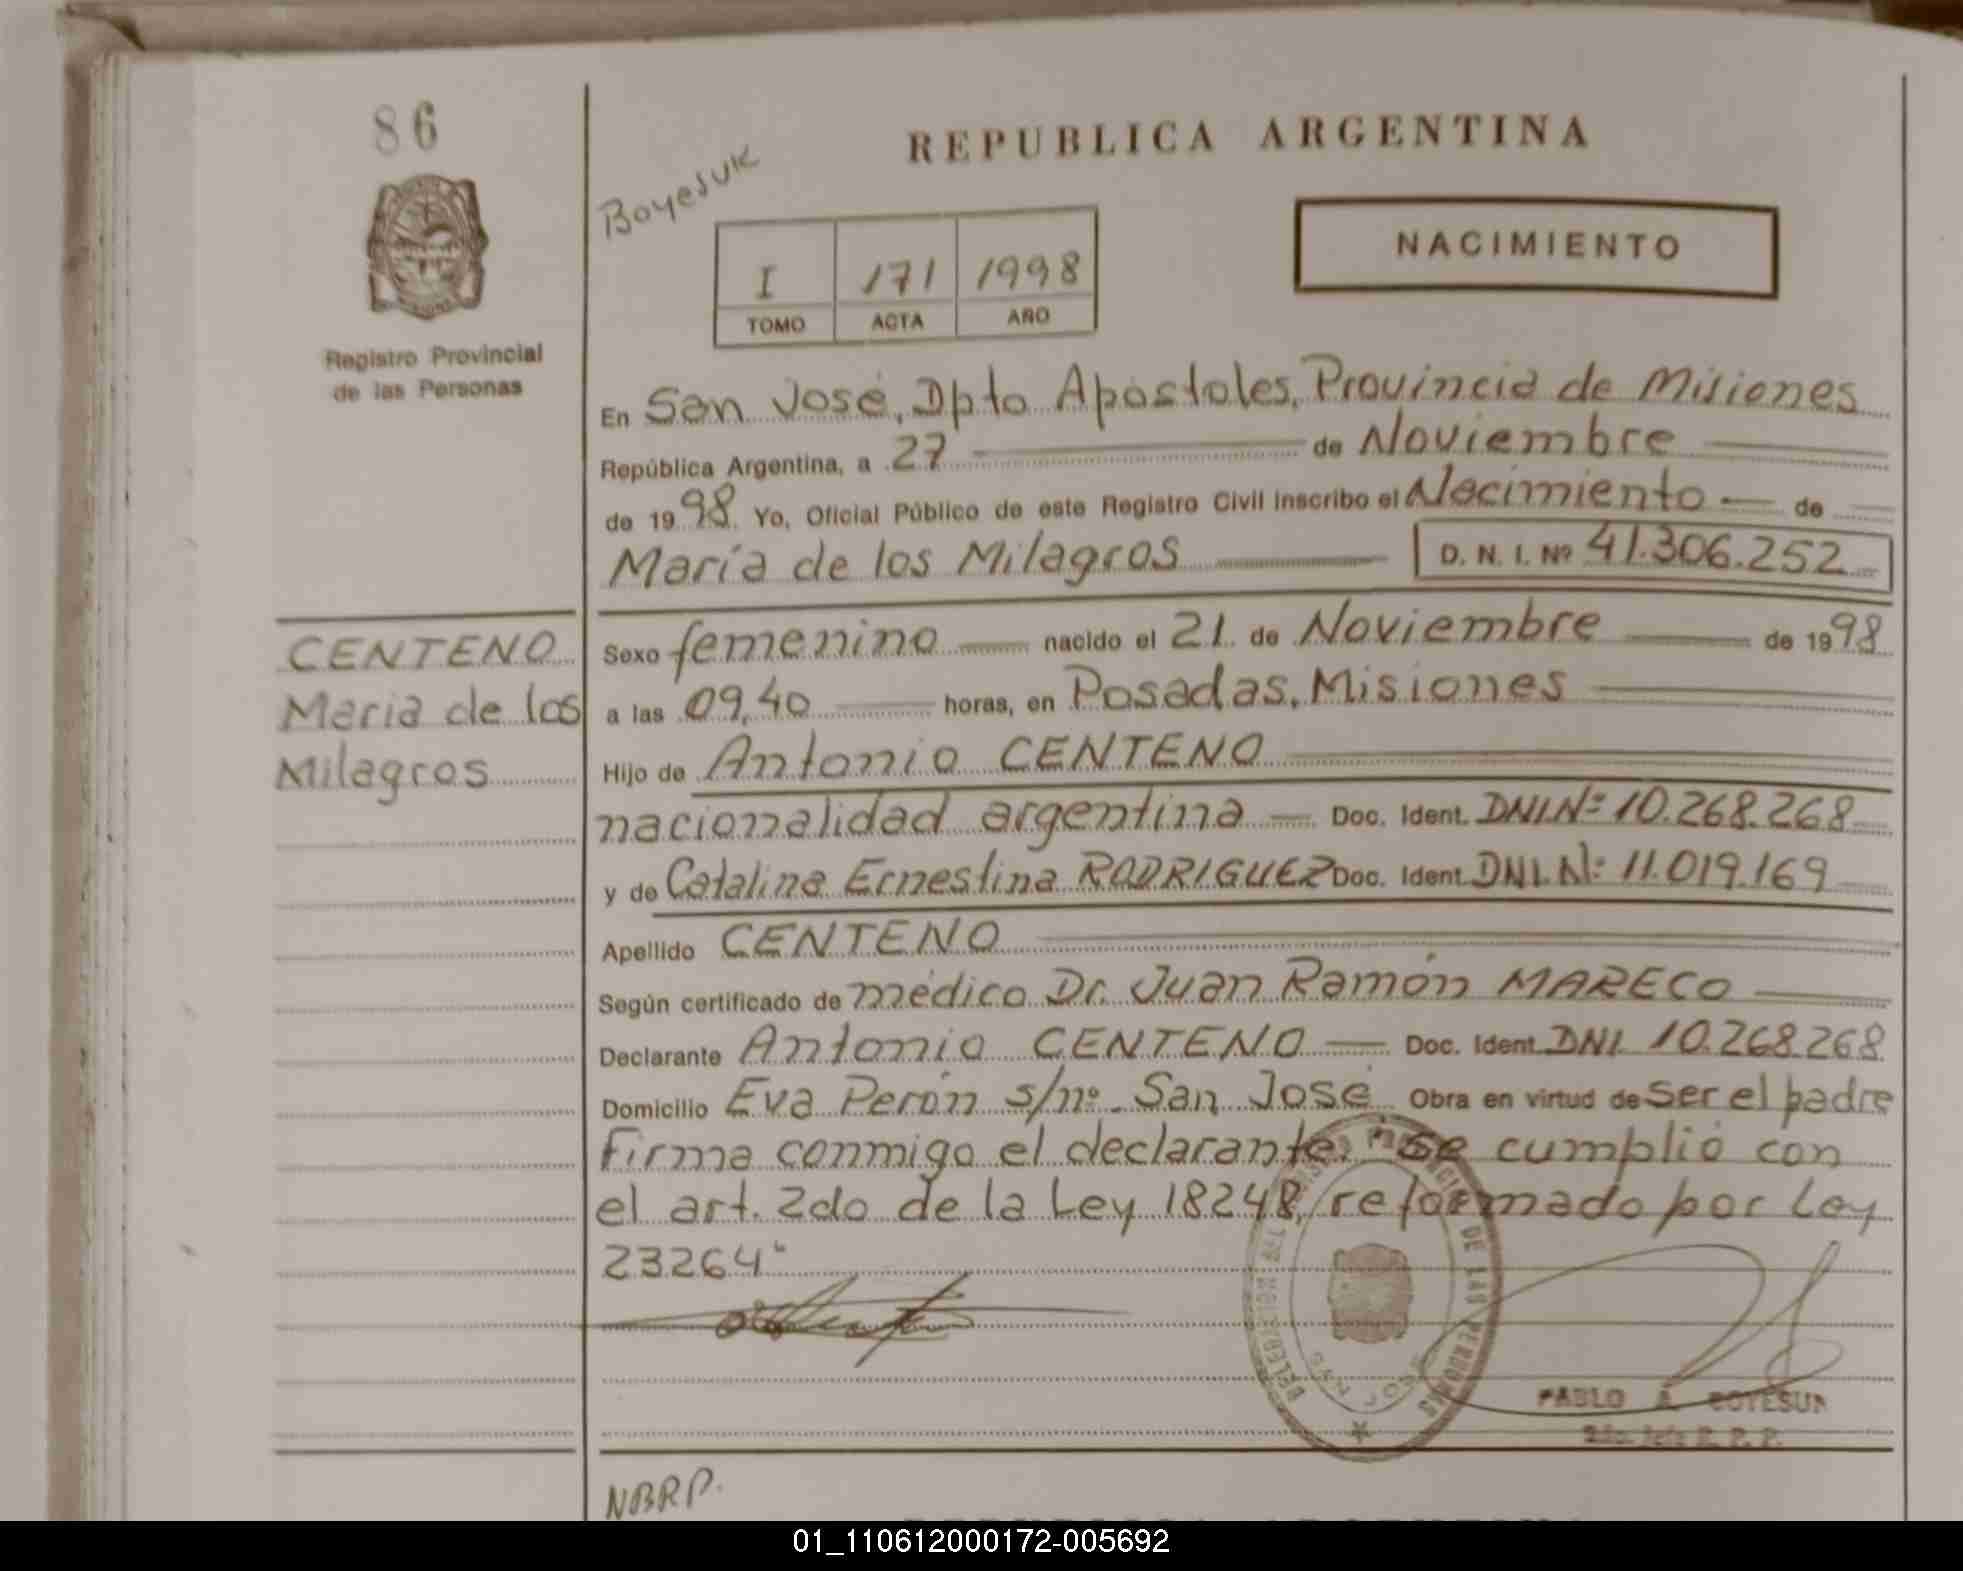 86
Boyesuk
REPUBLICA ARGENTINA
NACIMIENTO
I 171 1998
TOMO ACTA AÑO
Registro Provincial
de las Personas
En San José, Dpto Apóstoles, Provincia de Misiones
República Argentina, a 27 de Noviembre
de 1998. Yo, Oficial Público de este Registro Civil inscribo el Nacimiento de
María de los Milagros D. N. I. Nº 41.306.252
CENTENO
Maria de los
Milagros
Sexo femenino nacido el 21 de Noviembre de 1998
a las 09,40 horas, en Posadas, Misiones
Hijo de Antonio CENTENO
nacionalidad argentina Doc. Ident. DNI.Nº 10.268.268
y de Catalina Ernestina RODRIGUEZ Doc. Ident. DNI.Nº 11.019.169
Apellido CENTENO
Según certificado de médico Dr. Juan Ramón MARECO
Declarante Antonio CENTENO Doc. Ident. DNI 10.268.268
Domicilio Eva Perón s/nº. San José Obra en virtud de ser el padre
Firma conmigo el declarante. "se cumplió con
el art. 2do de la Ley 18248, reformado por Ley
23264"
DELEGACION DEL REGISTRO PROVINCIAL DE LAS PERSONAS
SAN JOSE
PABLO A. BOYESUK
R. P. P.
NBRP.
REPUBLICA ARGENTINA
01_110612000172-005692